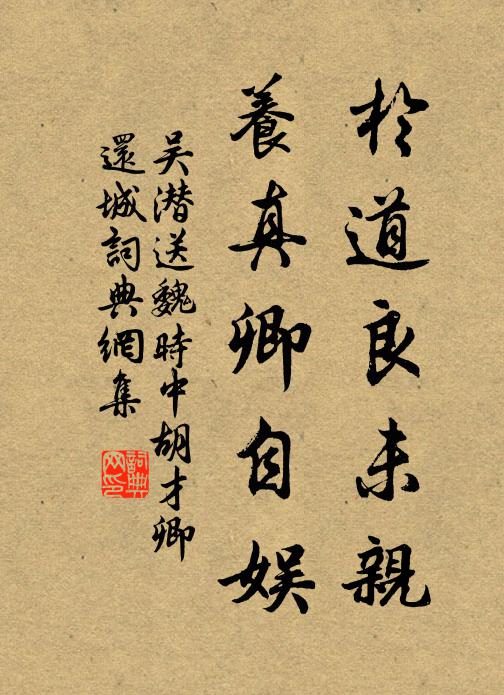 於道良未親
養真卿自娛
吴潜送魏時中胡才卿
還城詞典網集
詞典
网印